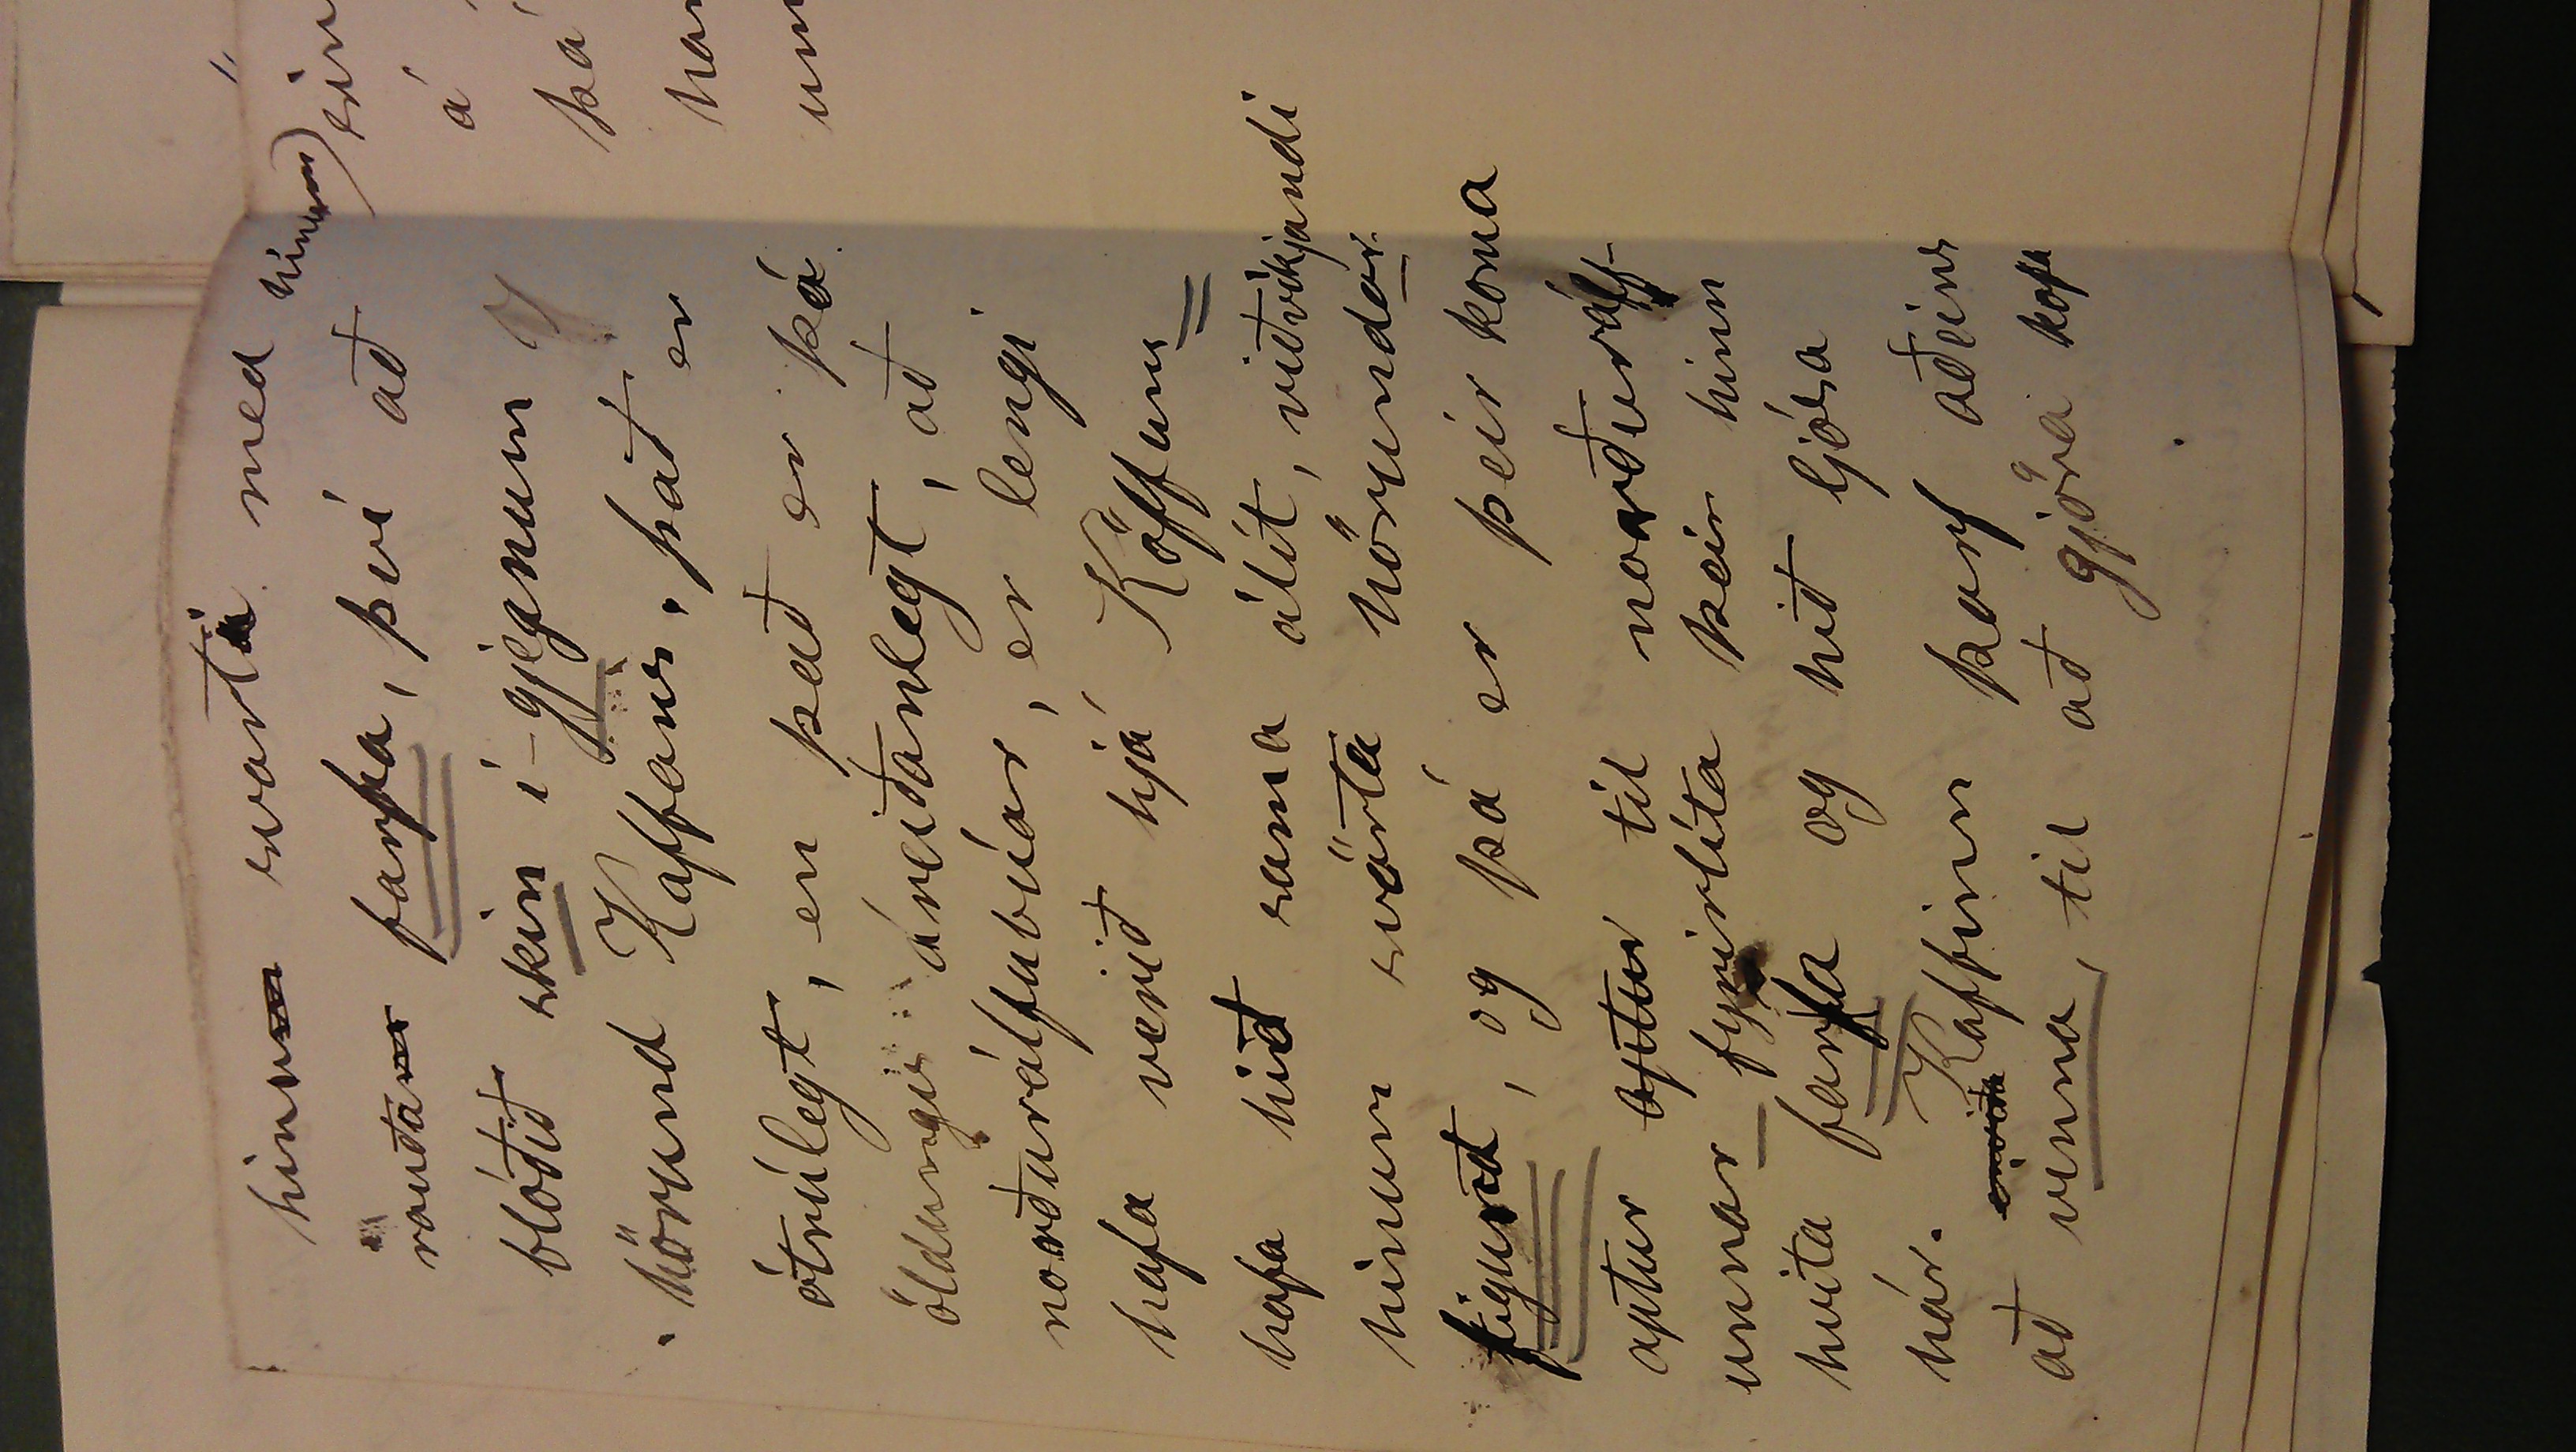 hinn svarta med hinum
rauða farfa, því að
blóðið skin í-gjegnum
hörund Kaffans, það er
ótrúlegt, en það er þá
öldungis áreiðanlegt, að
norðurálfubúar, er lengi
hafa verið hjá Köffum
hafa hið sama álit, viðvíkjandi
hinum svörta hörundar-
figurd, og þá er þeir koma
aptur aptur til norðurálf-
unnar fyrirlíta þeir hinn
hvita farfa og hið ljósa
hár. Kaffinn þarf aðeins
að vinna, til að gjöra kofa
ein
á
þá
han
um